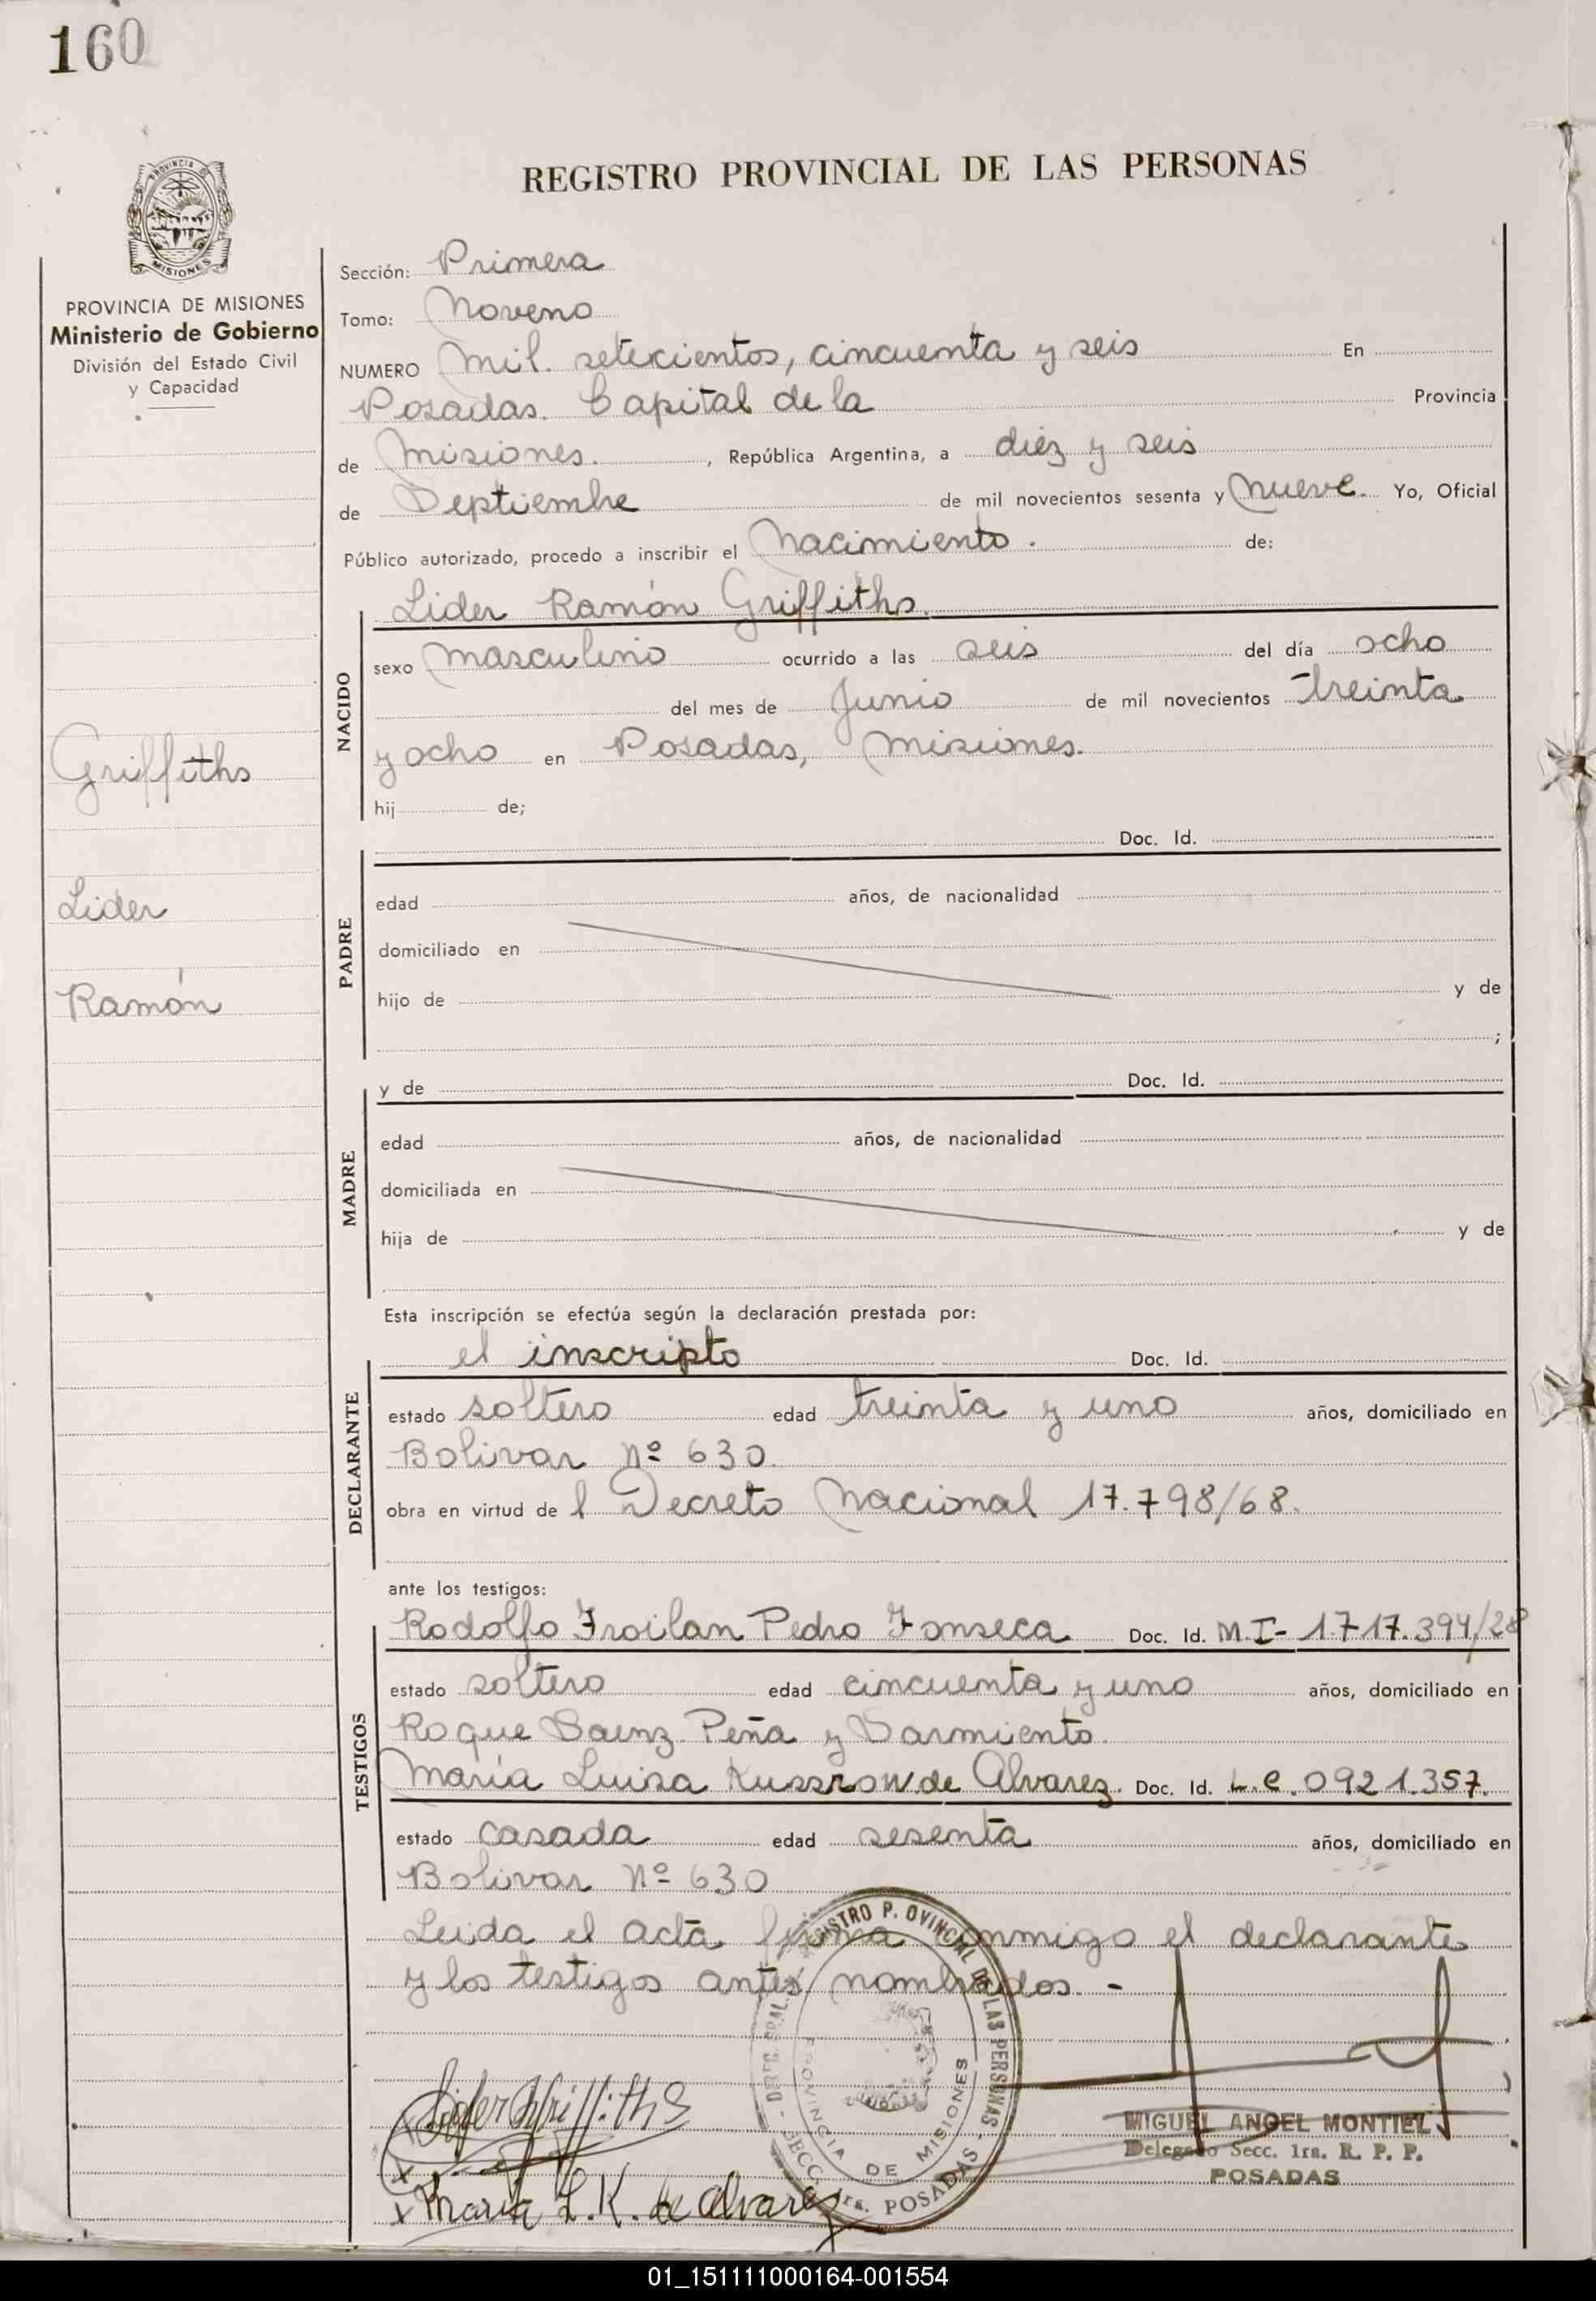 160
REGISTRO PROVINCIAL DE LAS PERSONAS
PROVINCIA
MISIONES
PROVINCIA DE MISIONES
Ministerio de Gobierno
División del Estado Civil
y Capacidad
Griffiths
Lider
Ramón
Sección: Primera
Tomo: Noveno
NUMERO Mil setecientos, cincuenta y seis En
Posadas. Capital de la Provincia
de Misiones. , República Argentina, a diez y seis
de Septiembre de mil novecientos sesenta y Nueve. Yo, Oficial
Público autorizado, procedo a inscribir el Nacimiento. de:
Lider Ramón Griffiths.
NACIDO
sexo Masculino ocurrido a las seis del día ocho
del mes de Junio de mil novecientos treinta
y ocho en Posadas, Misiones.
hij de;
Doc. Id.
PADRE
edad años, de nacionalidad
domiciliado en
hijo de y de
;
y de Doc. Id.
MADRE
edad años, de nacionalidad
domiciliada en
hija de y de
Esta inscripción se efectúa según la declaración prestada por:
el inscripto Doc. Id.
DECLARANTE
estado soltero edad treinta y uno años, domiciliado en
Bolivar Nº 630.
obra en virtud de l Decreto Nacional 17.798/68.
ante los testigos:
Rodolfo Froilan Pedro Fonseca Doc. Id. M.I- 1.717.394/28
TESTIGOS
estado soltero edad cincuenta y uno años, domiciliado en
Roque Saenz Peña y Sarmiento.
María Luisa Kussrow de Alvarez. Doc. Id. L.C. 0921.357.
estado casada edad sesenta años, domiciliado en
Bolivar Nº 630
Leida el acta firma conmigo el declarante
y los testigos antes nombrados. -
REGISTRO P. OVINCIAL DE LAS PERSONAS - SECC. 1ra. POSADAS
PROVINCIA DE MISIONES
Lider Griffiths
x
x María L. K. de Alvarez
MIGUEL ANGEL MONTIEL
Delegado Secc. 1ra. R. P. P.
POSADAS
01_151111000164-001554